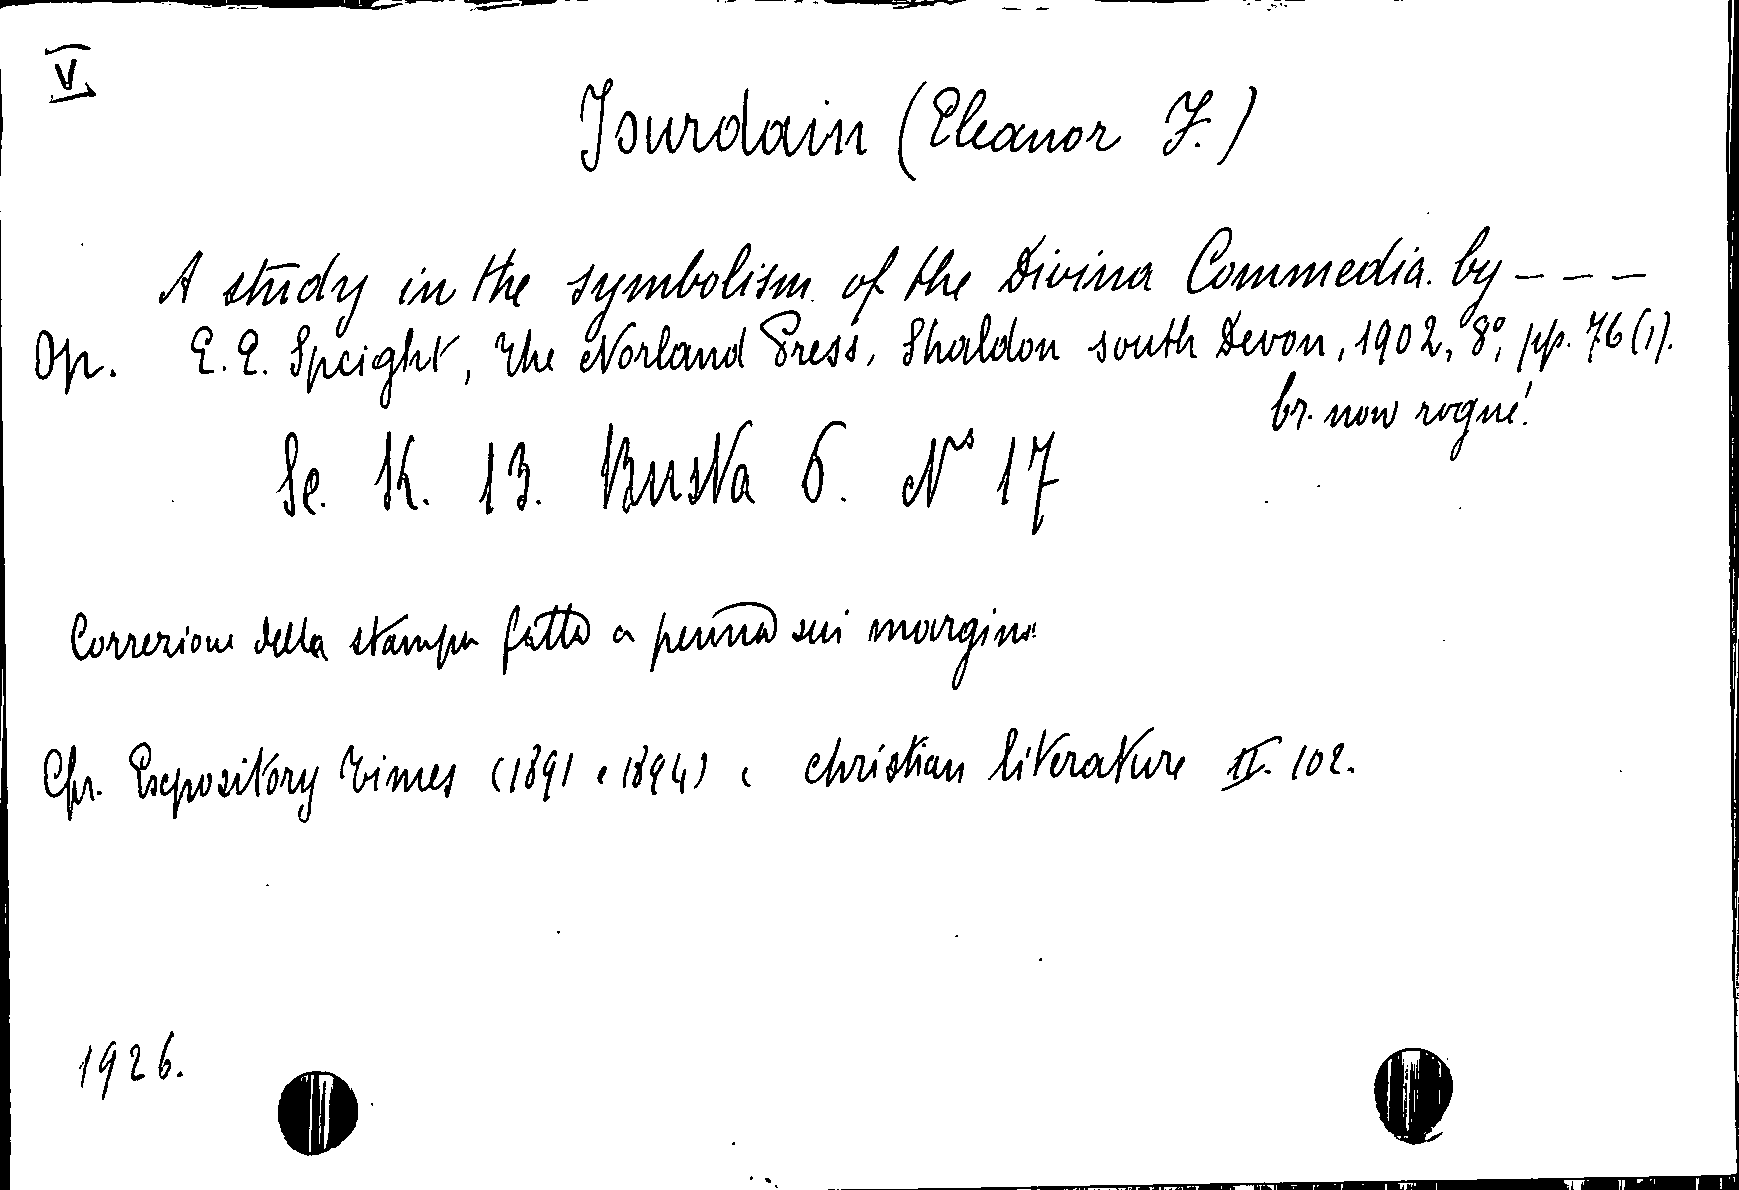 V
Jourdain (Eleanor F.)
A study in the symbolism of the Divina Commedia. by - - -
Op. E. E. Speight, The Norland Press, Shaldon south Devon, 1902, 8°, pp. 76 (1).
br. non rogné.
Sc. K. 13. Busta 6. N° 17
Correzione della stampa fatta a penna sui margini
Cfr. Expository Times (1891 e 1894) e Christian literature II. 102.
1926.